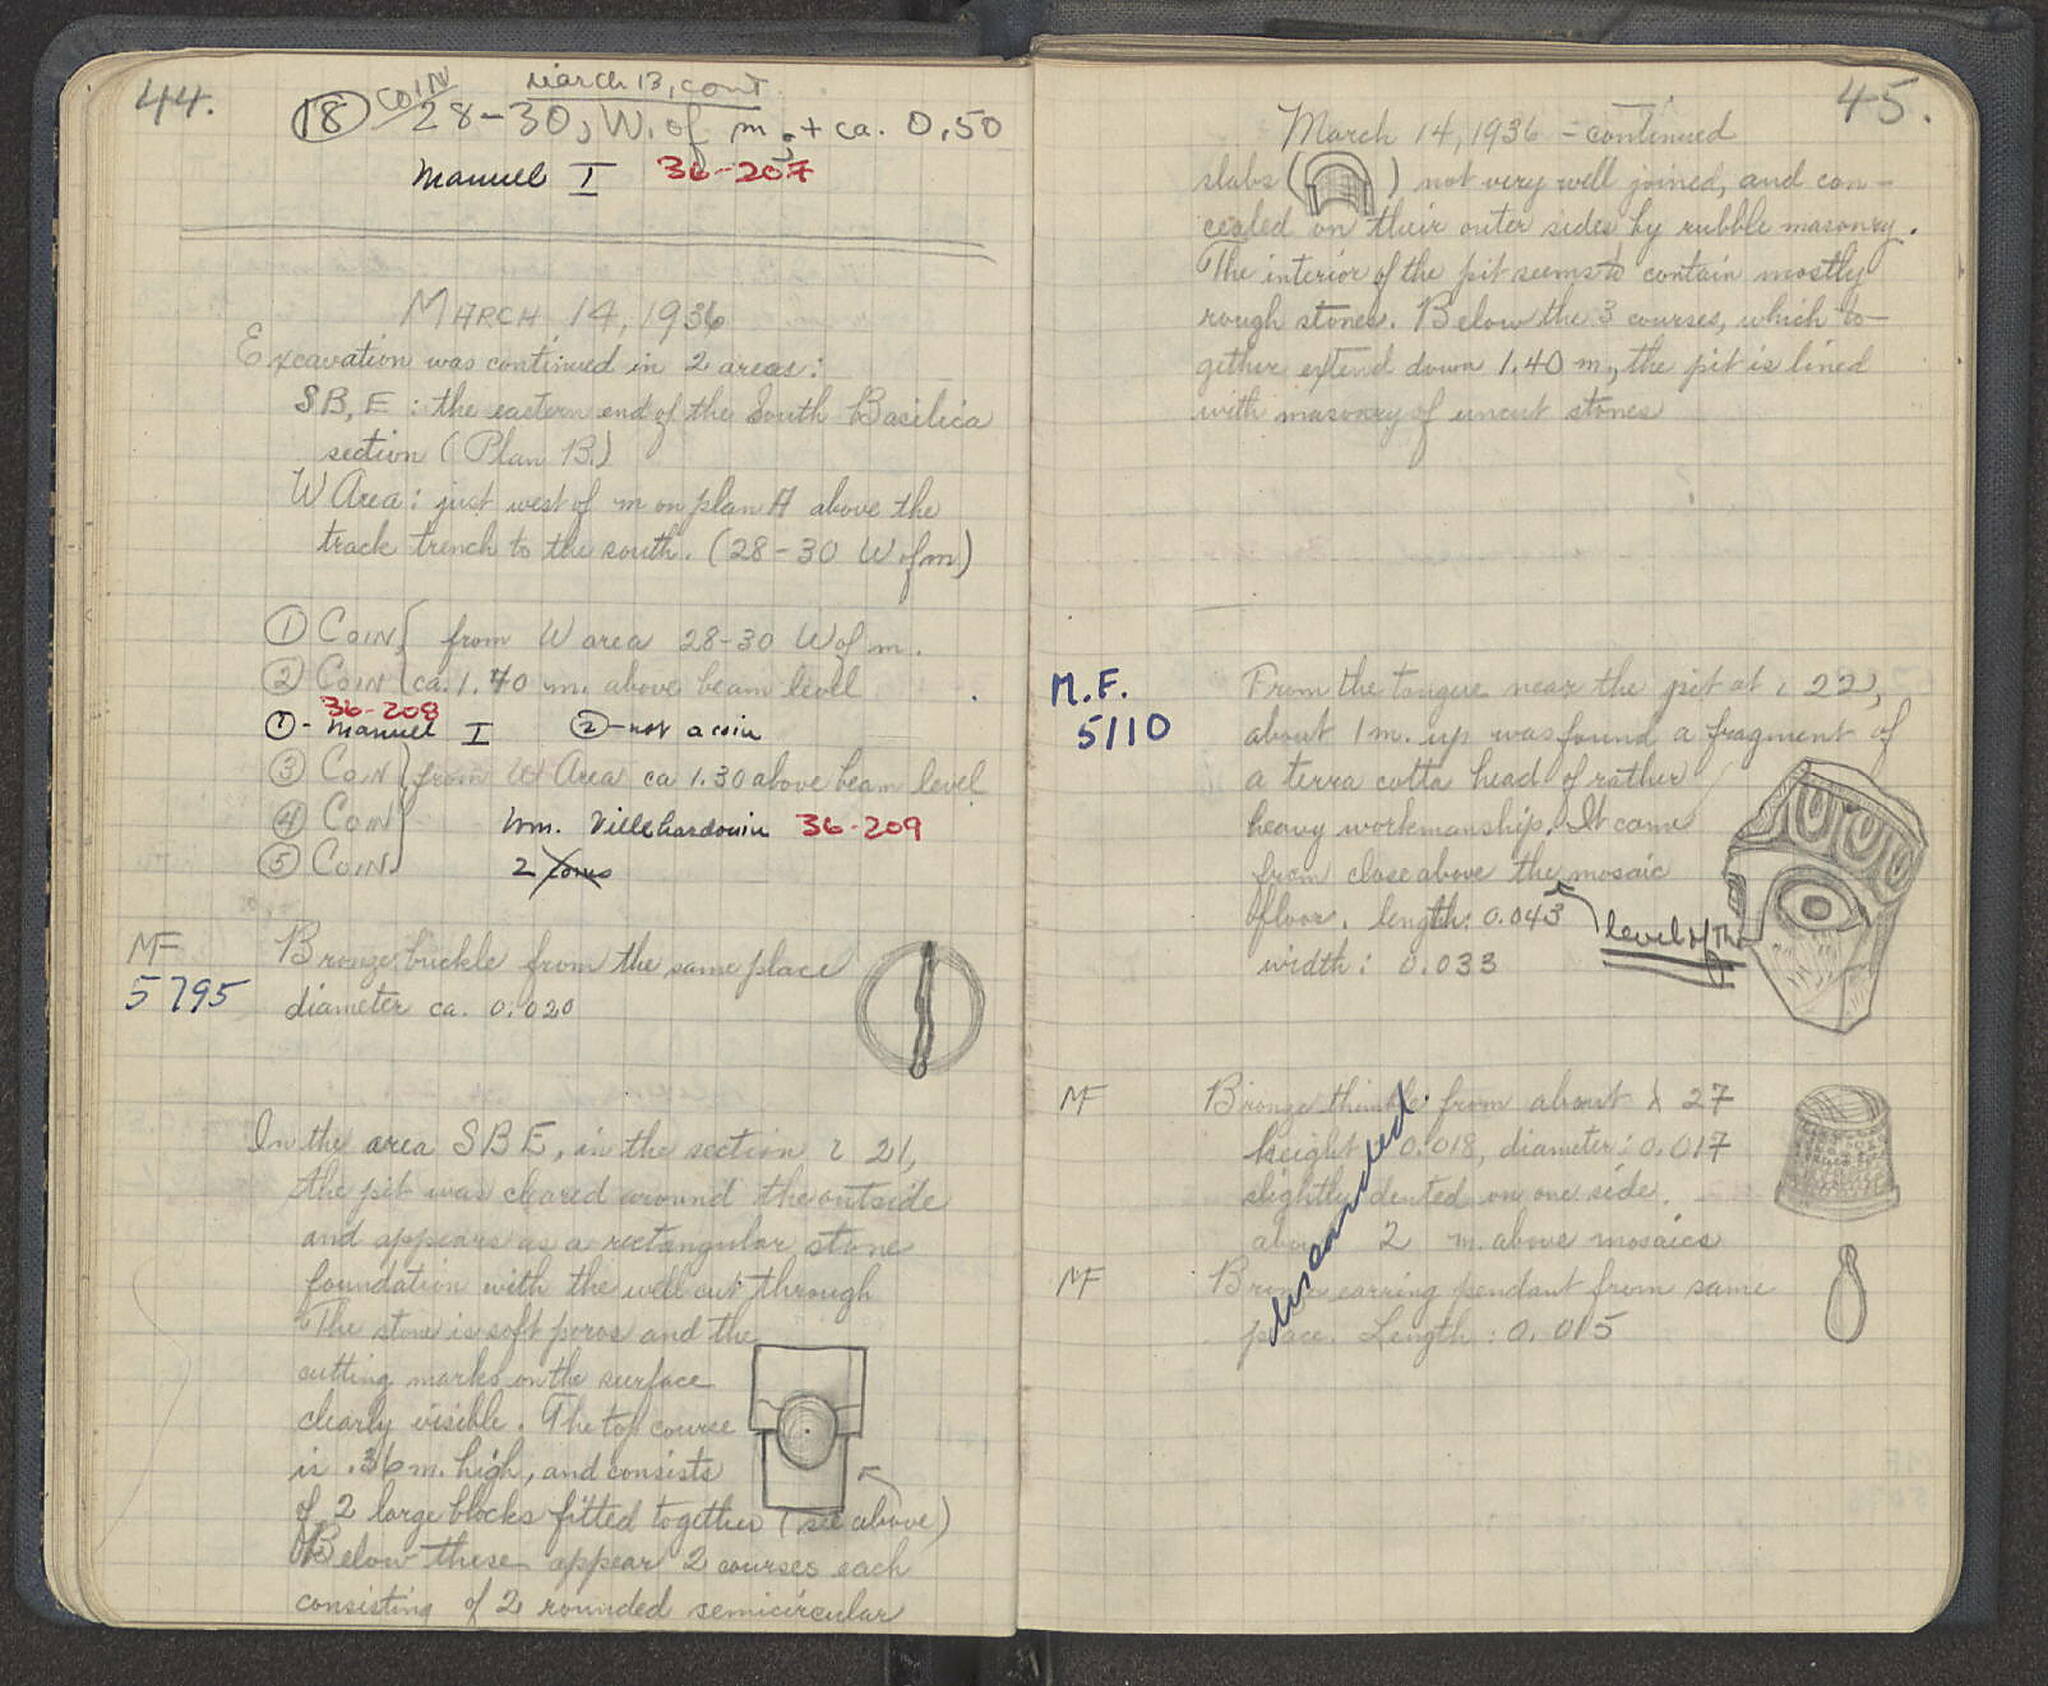 44.
March 13, cont
⑱ COIN 28-30, W. of m; + ca. 0,50
Manuel I 36-207
MARCH 14, 1936
Excavation was continued in 2 areas:
SB, E: the eastern end of the South Basilica
section (Plan B.)
W Area: just west of m on plan A above the
track trench to the south. (28-30 W of m)
① COIN } from W area 28-30 W of m.
② COIN ca. 1.40 m. above beam level
36-208
①- Manuel I ②-not a coin
③ COIN } from W Area ca 1.30 above beam level
④ COIN Wm. Villehardouin 36-209
⑤ COIN 2 coins
MF Bronze buckle from the same place
5795 diameter ca. 0.020
In the area SBE, in the section ι 21,
the pit was cleared around the outside
and appears as a rectangular stone
foundation with the well cut through
The stone is soft poros and the
cutting marks on the surface
clearly visible. The top course
is .36 m. high, and consists
of 2 large blocks fitted together (see above)
Below these appear 2 courses each
consisting of 2 rounded semicircular
45.
March 14, 1936 - continued
slabs ( ) not very well joined, and con-
cealed on their outer sides by rubble masonry.
The interior of the pit seems to contain mostly
rough stones. Below the 3 courses, which to-
gether extend down 1.40 m., the pit is lined
with masonry of uncut stones
M.F. From the tongue near the pit at ι 22,
5110 about 1 m. up was found a fragment of
a terra cotta head of rather
heavy workmanship. It came
from close above the mosaic
floor. length: 0.043 level of the
width: 0.033
MF Bronze thimble from about λ 27
height 0.018, diameter: 0.017
slightly dented on one side.
about 2 m. above mosaics
MF Bronze earring pendant from same
place. Length: 0.015
discarded